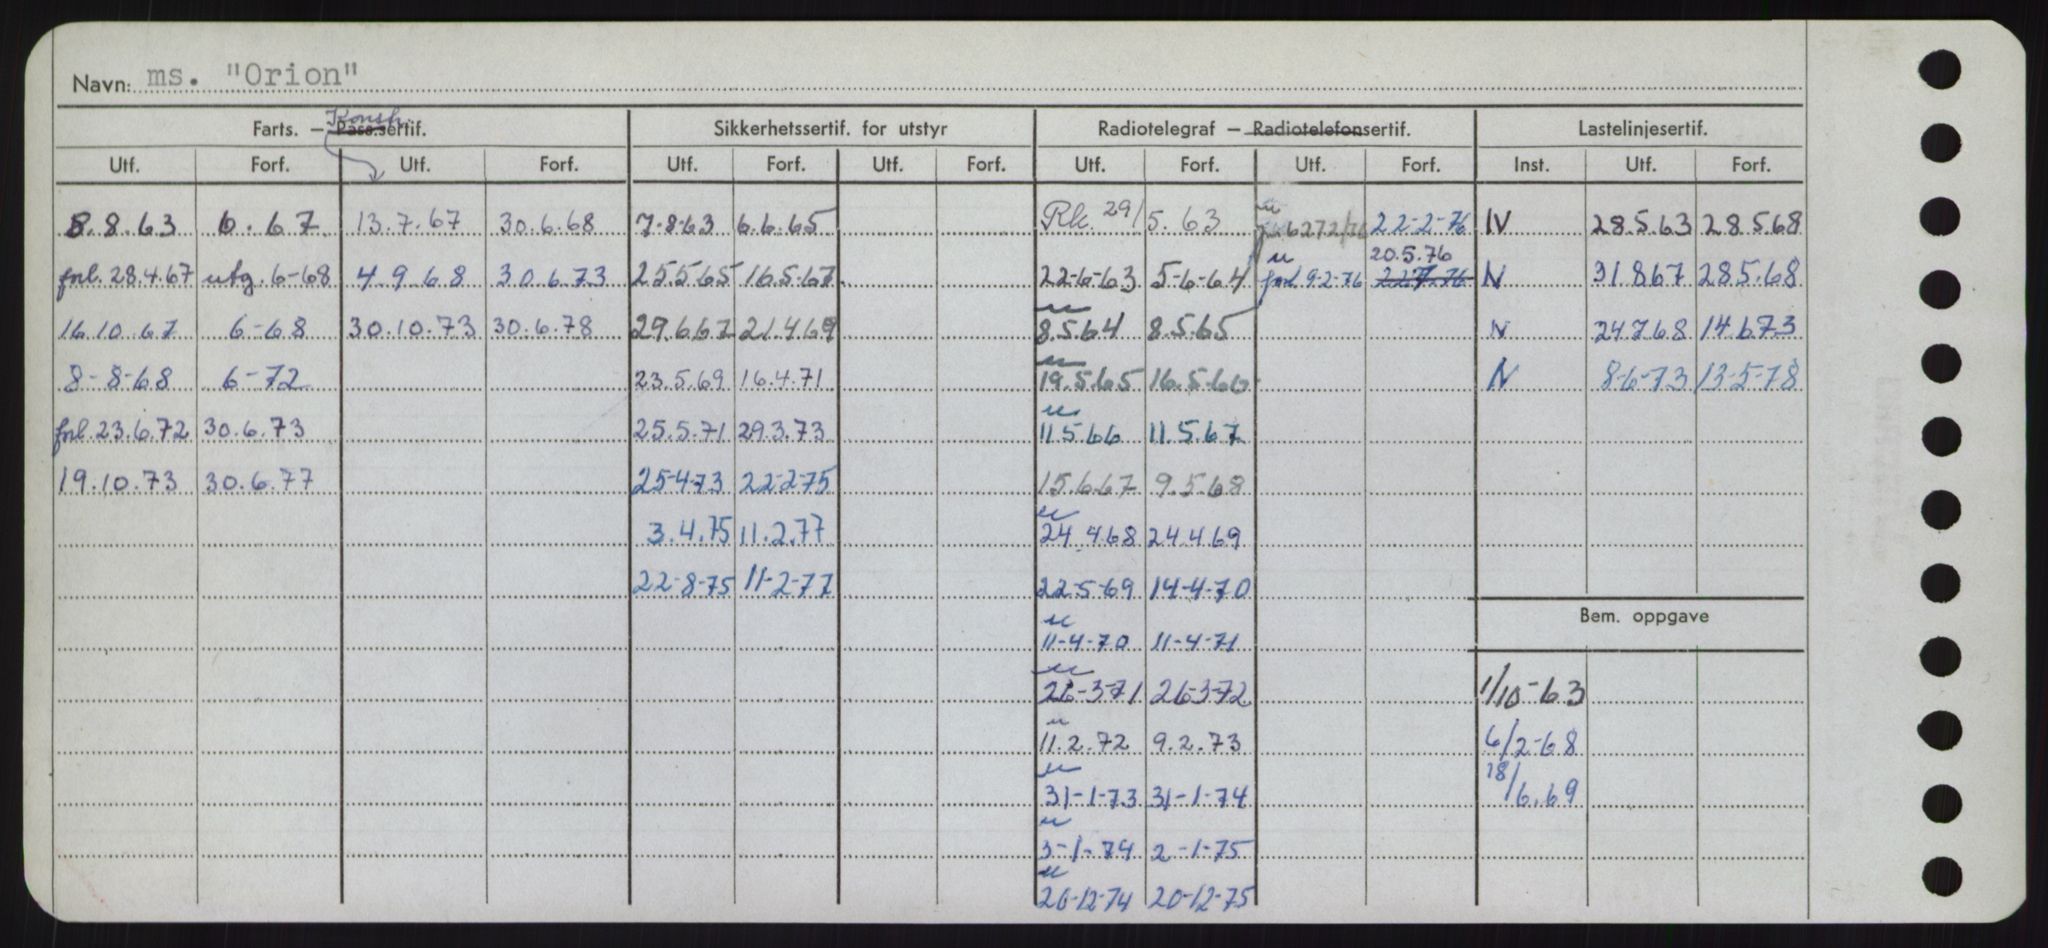 Navn: ms. "Orion"
Konstr.
Farts. — Pass.sertif. Sikkerhetssertif. for utstyr Radiotelegraf — Radiotelefonsertif. Lastelinjesertif.
Utf. Forf. Utf. Forf. Utf. Forf. Utf. Forf. Utf. Forf. Utf. Forf. Inst. Utf. Forf.
8.8.63 6.67 13.7.67 30.6.68 7.8.63 6.6.65 Rk. 29/5.63 22-2-76 NV 28.5.63 28.5.68
20.5.76
forl. 28.4.67 utg. 6-68 4.9.68 30.6.73 25.5.65 16.5.67 22-6-63 5-6-64 forl 9-2-76 N 31.8.67 28.5.68
16.10.67 6-68 30.10.73 30.6.78 29.6.67 21.4.69 8.5.64 8.5.65 N 24.7.68 14.6.73
8-8-68 6-72 23.5.69 16.4.71 19.5.65 16.5.66 N 8-6-73 13-5-78
forl. 23.6.72 30.6.73 25.5.71 29.3.73 11.5.66 11.5.67
19.10.73 30.6.77 25-4-73 22-2-75 15.6.67 9.5.68
3.4.75 11.2.77 24.4.68 24.4.69
22-8-75 11-2-77 22-5-69 14-4-70
Bem. oppgave
11-4-70 11-4-71
26-3-71 26-3-72 1/10-63
11.2.72 9.2.73 6/2-68
31-1-73 31-1-74 18/6.69
3-1-74 2-1-75
20-12-74 20-12-75